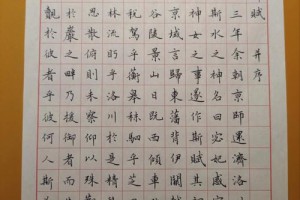 賦 并序
三年余朝京師還濟洛
斯水之神名曰宓妃感
神女之事遂作斯賦其
京域言歸東藩背伊闕
谷陵景山日既西傾車
稅駕乎蘅皋秣駟乎芝
林流眄乎洛川於是精
思散俯則未察仰以殊
於巖之畔乃援御者而
覿於彼者乎彼何人斯